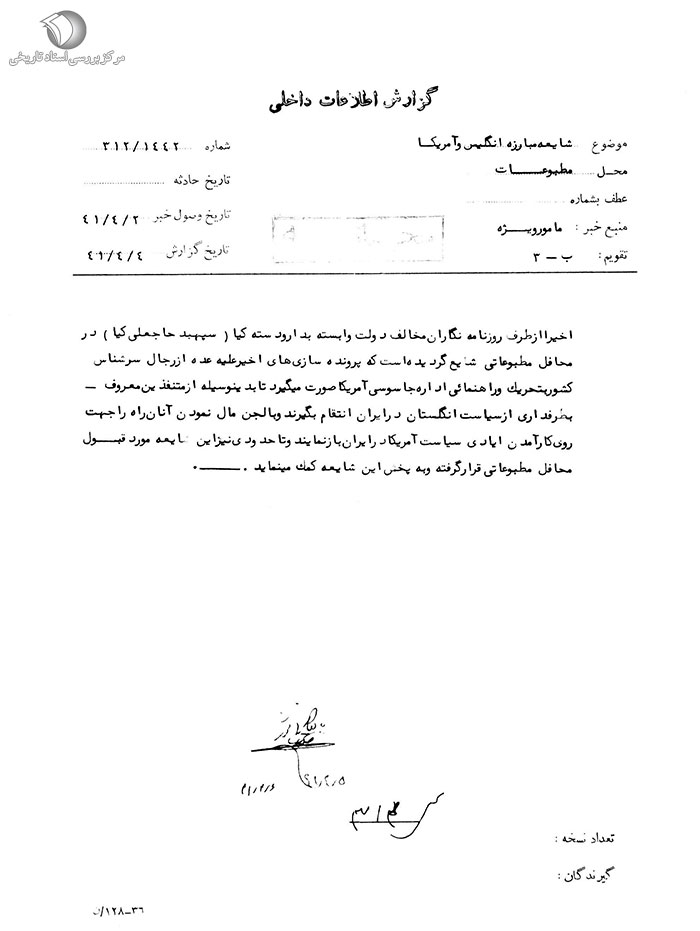 مرکز بررسی اسناد تاریخی
گزارش اطلاعات داخلی
موضوع شایعه مبارزه انگلیس وآمریکا
شماره ۳۱۲/۱۴۴۲
محل مطبوعات
تاریخ حادثه
عطف بشماره
تاریخ وصول خبر ۴۱/۴/۲
منبع خبر : مامورویژه
تاریخ گزارش ۴۱/۴/۴
تقویم : ب – ۳
اخیرا ازطرف روزنامه نگاران مخالف دولت وابسته بدارودسته کیا ( سپهبد حاجعلی کیا ) در
محافل مطبوعاتی شایع گردیده است که پرونده سازی های اخیرعلیه عده ازرجال سرشناس
کشوربتحریك وراهنمائی اداره جاسوسی آمریکا صورت میگیرد تا بدینوسیله ازمتنفذین معروف –
بطرفداری ازسیاست انگلستان درایران انتقام بگیرند وبالجن مال نمودن آنان راه راجهت
روی کارآمدن ایادی سیاست آمریکا درایران بازنمایند وتاحدودی نیزاین شایعه مورد قبول
محافل مطبوعاتی قرارگرفته وبه پخش این شایعه کمك مینماید .
۴۱/۴/۵
۳۱۴
تعداد نسخه :
گیرندگان :
۳۶–۱۲۸/ن